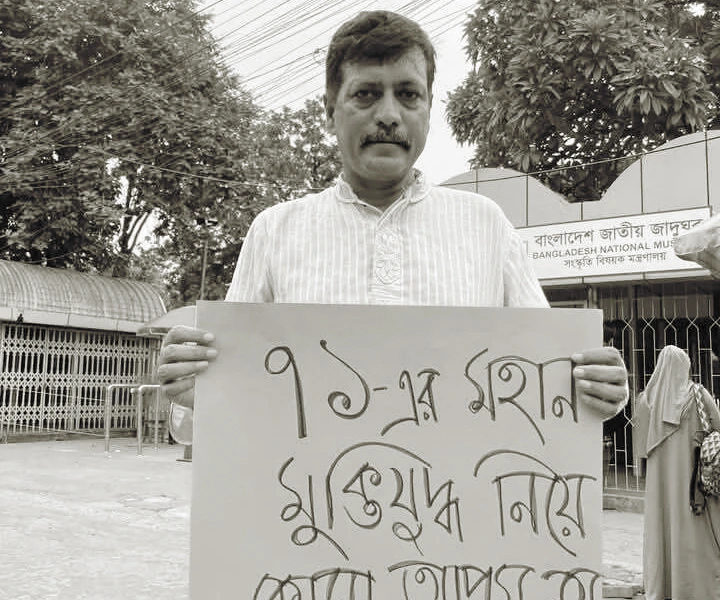 বাংলাদেশ জাতীয় জাদুঘর
BANGLADESH NATIONAL MU
সংস্কৃতি বিষয়ক মন্ত্রণালয়
৭১-এর মহান
মুক্তিযুদ্ধ নিয়ে